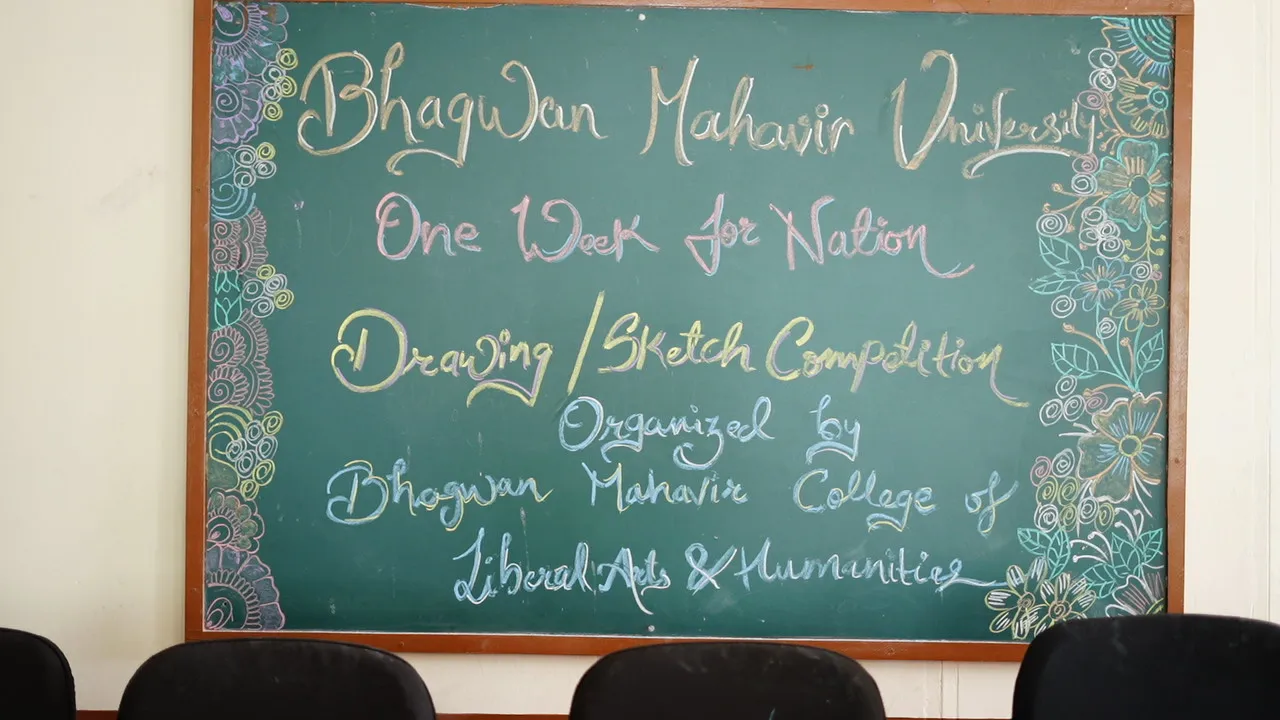 Bhagwan Mahavir University
One Week for Nation
Drawing / Sketch Competition
Organized by
Bhagwan Mahavir College of
Liberal Arts & Humanities